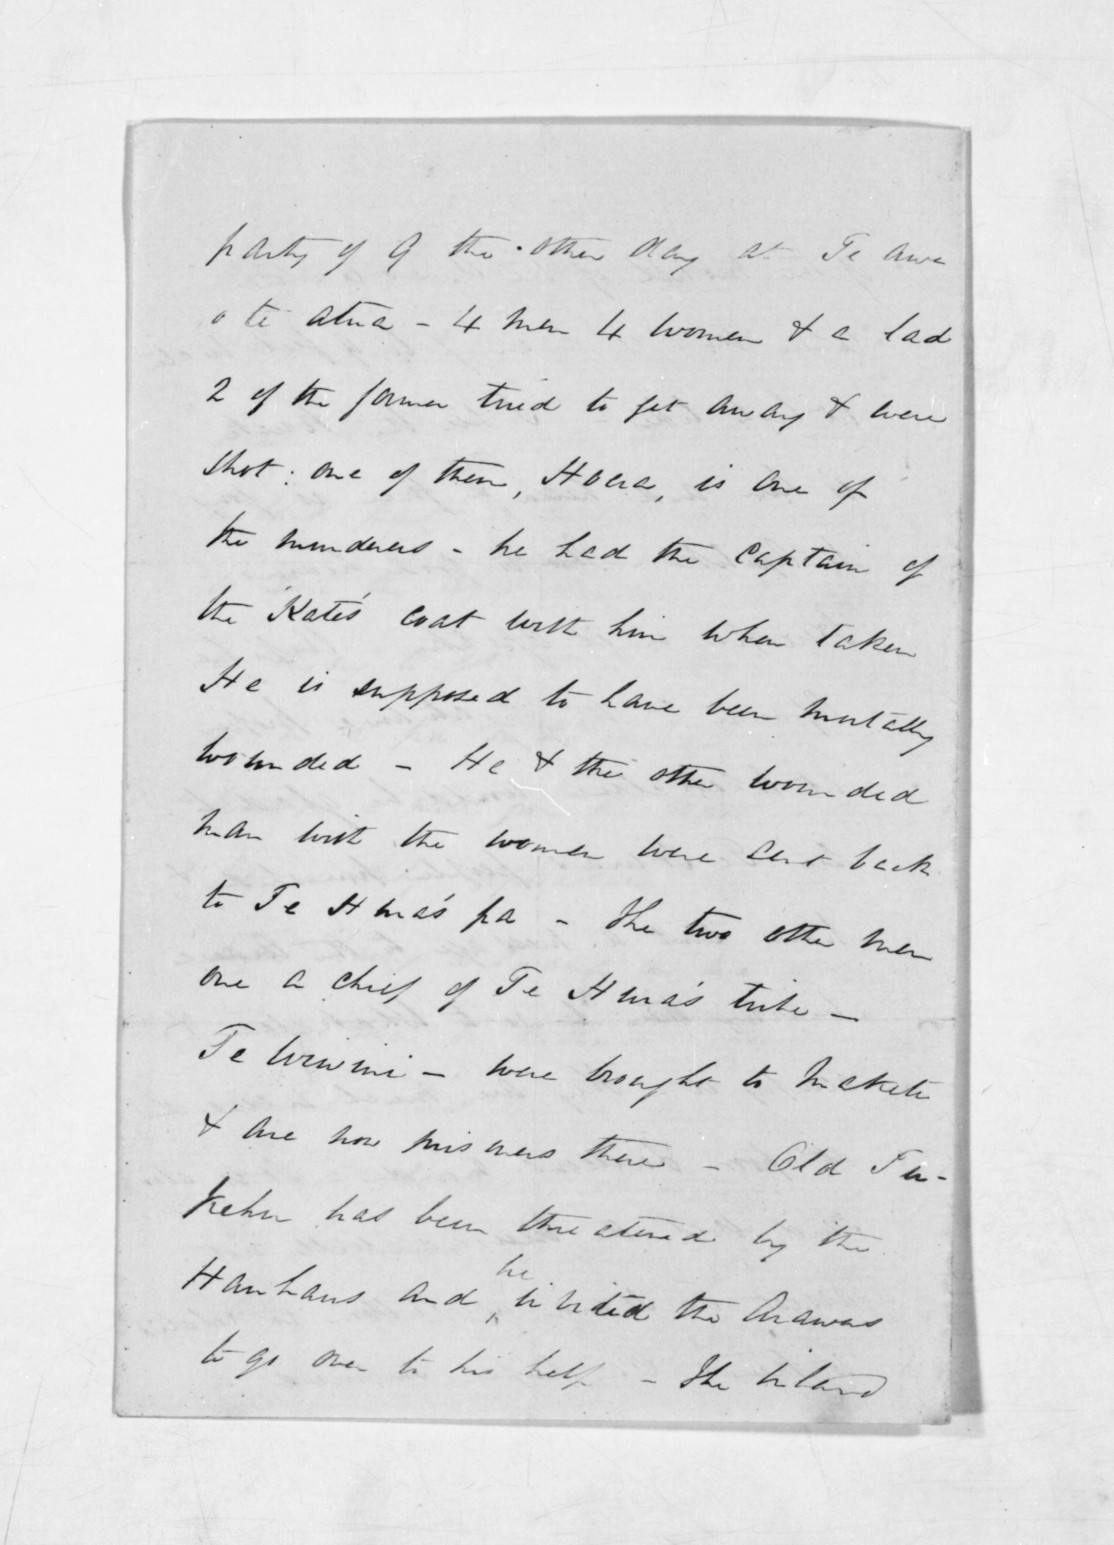 party of 9 the other day at Te Awa
o te atua - 4 men 4 women & a lad
2 of the former tried to get away & were
shot: one of them, Hoera, is one of
the murderers - he had the Captain of
the 'Kate's' coat with him when taken
He is supposed to have been mortally
wounded - He & the other wounded
man with the women were sent back
to Te Hura's pa - The two other men
one a chief of Te Hura's tribe -
Te Wiwini - were brought to Maketu
& are now prisoners there - Old Te
has been threatened by the
Hauhaus and he invited the Arawas
to go over to his help - The inland